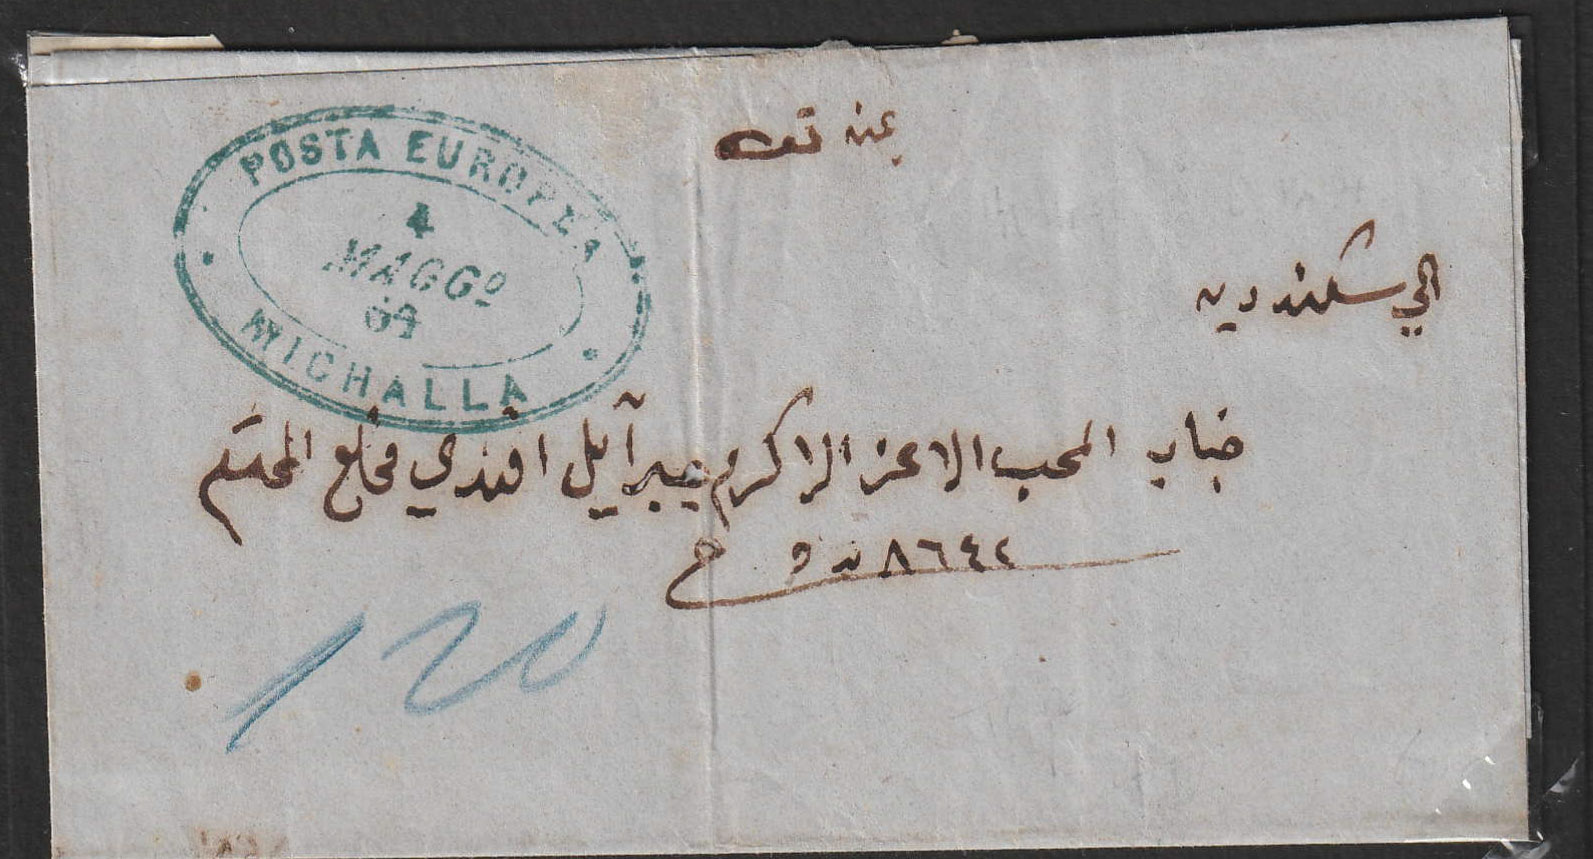 POSTA EUROPEA
4
MAGGº
64
MICHALLA
الي سكندريه
جناب المحب الاعز الاكرم جبرآيل افندي مخلع المحترم
٨٦٤٢
120